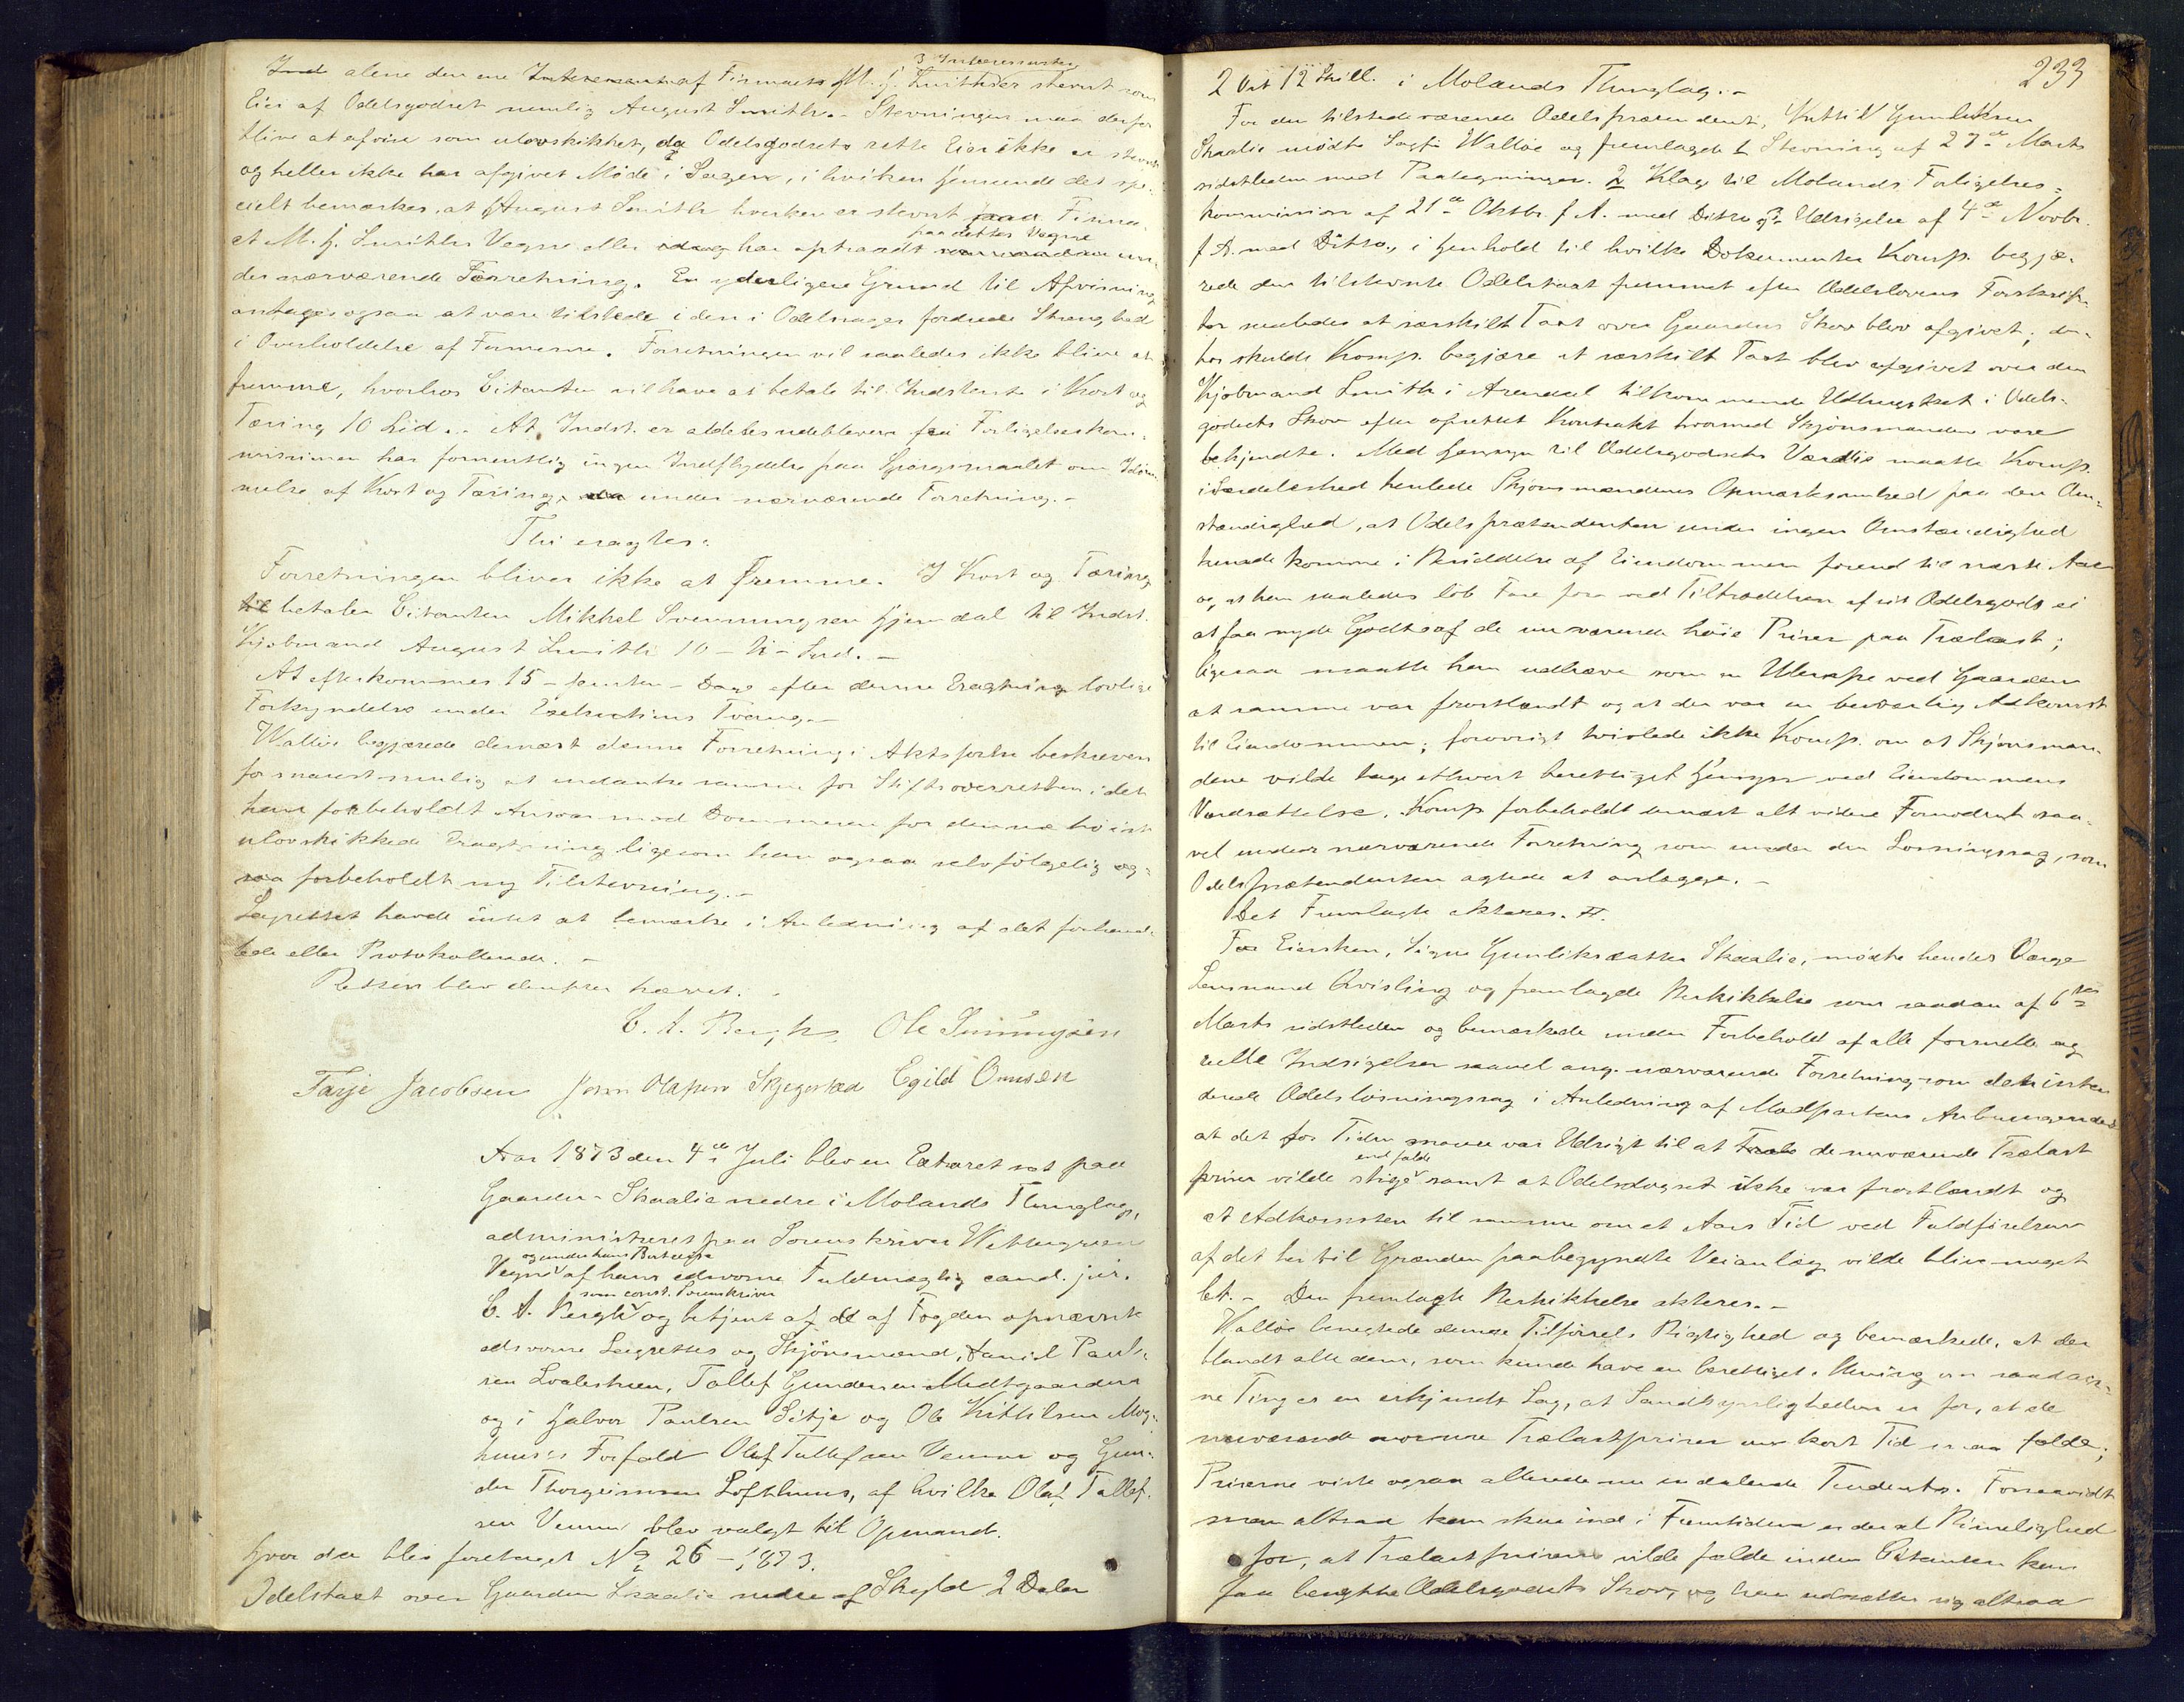 3 Interessenter
alene den ene af Firmaets M. J. Smiths er stevnt som
Eier af Odelsgodset nemlig August Smith. – Stevningen maa derfor
blive at afvise som ulovskikket, da Odelsgodsets rette Eier ikke er stevnt
og heller ikke har afgivet Møde i Sagen, i hvilken Henseende det spe-
cielt bemærkes, at August Smith hverken er stevnt Firma-
paa dettes Vegne
et M. J. Smiths Vegne eller har optraadt un-
der nærværende Forretning. En yderligere Grund til Afvisning
antages ogsaa at være tilstede i den i Odelssager fordrede Strenghed
i Overholdelse af Formerne. Forretningen vil saaledes ikke blive at
fremme, hvorhos Citanten vil have at betale til Indstevnte i Kost og
Tæring 10 Spd. – At Indst. er aldeles udebleven fra Forligelseskom-
missionen har formentlig ingen Indflydelse paa Spørgsmaalet om Idøm-
melse af Kost og Tæring under nærværende Forretning. –
Thi eragtes:
Forretningen bliver ikke at fremme. I Kost og Tæring
betaler Citanten Mikkel Svenningsen Hjemdal til Indst.
Kjøbmand August Smith 10 – ti – Spd. –
At efterkommes 15 – femten – Dage efter denne Eragtnings lovlige
Forkyndelse under Exekutions Tvang. –
Walløe begjærede dernæst denne Forretning i Aktsform beskreven
for snarest mulig at indanke samme for Stiftsoverretten, idet
han forbeholdt Ansvar mod Dommeren for denne høist
ulovskikkede Eragtning ligesom han ogsaa selvfølgelig og-
saa forbeholdt ny Tilstevning. –
Lagrettet havde intet at bemærke i Anledning af det forhand-
lede eller Protokollerede. –
Retten blev derefter hævet. –
C. A. Bergh. Ole Svenningsen
Tarje Jacobsen John Olafsen Skjeggestad Egild Omsen
Aar 1873 den 4de Juli blev en Extraret sat paa
Gaarden Skaalie nedre i Molands Thinglag,
administreret paa Sorenskriver Wettergreens
og under hans Bortreise
Vegne af hans edsvorne Fuldmægtig cand. jur.
som const. Sorenskriver
C. A. Bergh og betjent af de af Fogden opnævnte
edsvorne Laugrettes og Skjønsmænd, Daniel Paul-
sen Tallef Gundersen Midtgaarden
og i Halvor Paulsen Sitje og Ole Kittilsen Mog-
huus's Forfald Olaf Tallefsen Vemme og Gun-
der Thorgrimsen Lofthuus, af hvilke Olaf Tallef-
sen Vemme blev valgt til Opmand.
Hvor da blev foretaget No 26 – 1873.
Odelstaxt over Gaarden Skaalie nedre af Skyld 2 Daler
233
2 Ort 12 Skill. i Molands Thinglag. –
For den tilstedeværende Odelsprætendent, Kittil Gunleksen
Skaalie mødte Sagf. Walløe og fremlagde 1 Stevning af 27de Marts
sidstleden med Paategninger. 2 Klage til Molands Forligelses-
kommission af 21de Oktbr. f. A. med Ditto og 3 Udskrift af 4de Novbr.
f. A. med Ditto, i Henhold til hvilke Dokumenter Komp. begjæ-
rede den tilstevnte Odelstaxt fremmet efter Odelslovens Forskrif-
ter saaledes at særskilt Taxt over Gaardens Skov blev afgivet; der-
hos skulde Komp. begjære at særskilt Taxt blev afgivet over den
Kjøbmand Smith i Arendal tilkommende Udhugstret i Odels-
godsets Skov efter oprettet Kontrakt hvormed Skjønsmændene vare
bekjendte. Med Hensyn til Odelsgodsets Værdie maatte Komp.
isærdeleshed henlede Skjønsmændenes Opmærksomhed paa den Om-
stændighed, at Odelsprætendenten under ingen Omstændighed
kunde komme i Besiddelse af Eiendommen førend til næste Aar
og at han saaledes løb Fare for ved Tiltrædelsen af sit Odelsgods ei
at faa nyde Godt af de nuværende høie Priser paa Trælast;
ligesaa maatte han udhæve som en Ulempe ved Gaarden
at samme var frostlændt og at der var en besværlig Adkomst
til Eiendommen; forøvrigt tvivlede ikke Komp. om at Skjønsmæn-
dene vilde tage ethvert berettiget Hensyn ved Eiendommens
Værdsættelse. Komp. forbeholdt dernæst alt videre Fornødent saa-
vel under nærværende Forretning som under den Løsningssag, som
Odelsprætendenten agtede at anlægge. –
Det Fremlagte akteres.
For Eiersken, Signe Gunliksdatter Skaalie, mødte hendes Værge
Lensmand Qvisling og fremlagde Beskikkelse som saadan af 6te
Marts sidstleden og bemærkede under Forbehold af alle formelle og
reelle Indsigelser saavel ang. nærværende Forretning som den inten-
derede Odelsløsningssag i Anledning af Modpartens Anbringende
at det for Tiden snarere var Udsigt til at de nuværende Trælast
end falde
priser vilde stige samt at Odelsgodset ikke var frostlændt og
at Adkomsten til samme om et Aars Tid ved Fuldførelsen
af det her til Grænden paabegyndte Veianlæg vilde blive meget
let. – Den fremlagte Beskikkelse akteres. –
Walløe benegtede denne Tilførsels Rigtighed og bemærkede, at der
blandt alle dem, som kunde have en berettiget Mening om saadan-
ne Ting er en erkjendt Sag, at Sandsynligheden er for, at de
nuværende enorme Trælastpriser om kort Tid maa falde;
Priserne viste ogsaa allerede nu en dalende Tendents. Forsaavidt
man altsaa kan skue ind i Fremtiden er der al Rimelighed
for, at Trælastpriserne vilde falde inden Citanten kan
faa benytte Odelsgodsets Skov, og han udsætter sig altsaa